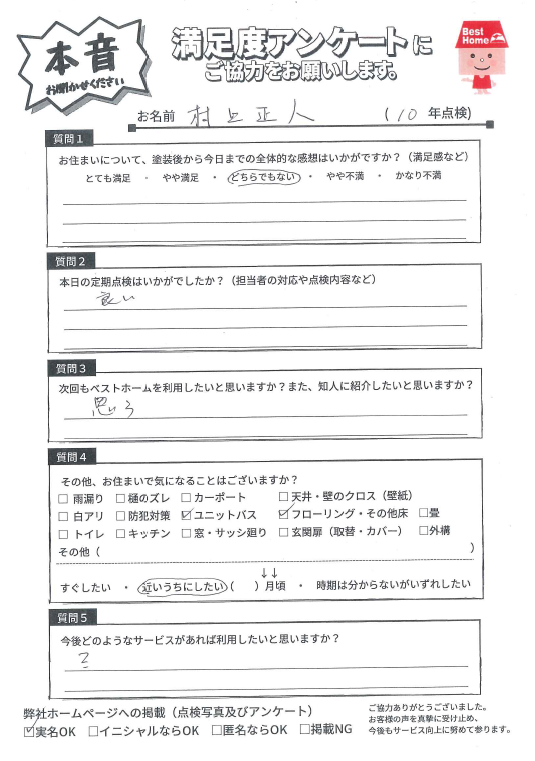 本音
お聞かせください
満足度アンケートに
ご協力をお願いします。
Best Home
お名前 村上正人 （10 年点検）
質問1
お住まいについて、塗装後から今日までの全体的な感想はいかがですか？（満足感など）
とても満足 ・ やや満足 ・ どちらでもない ・ やや不満 ・ かなり不満
質問2
本日の定期点検はいかがでしたか？（担当者の対応や点検内容など）
良い
質問3
次回もベストホームを利用したいと思いますか？また、知人に紹介したいと思いますか？
思いう
質問4
その他、お住まいで気になることはございますか？
□ 雨漏り □ 樋のズレ □ カーポート □ 天井・壁のクロス（壁紙）
□ 白アリ □ 防犯対策 ☑ ユニットバス ☑ フローリング・その他床 □畳
□ トイレ □ キッチン □ 窓・サッシ廻り □ 玄関扉（取替・カバー） □外構
その他（ ）
↓↓
すぐしたい ・ 近いうちにしたい（ ）月頃 ・ 時期は分からないがいずれしたい
質問5
今後どのようなサービスがあれば利用したいと思いますか？
?
弊社ホームページへの掲載（点検写真及びアンケート）
☑実名OK □イニシャルならOK □匿名ならOK □掲載NG
ご協力ありがとうございました。
お客様の声を真摯に受け止め、
今後もサービス向上に努めて参ります。